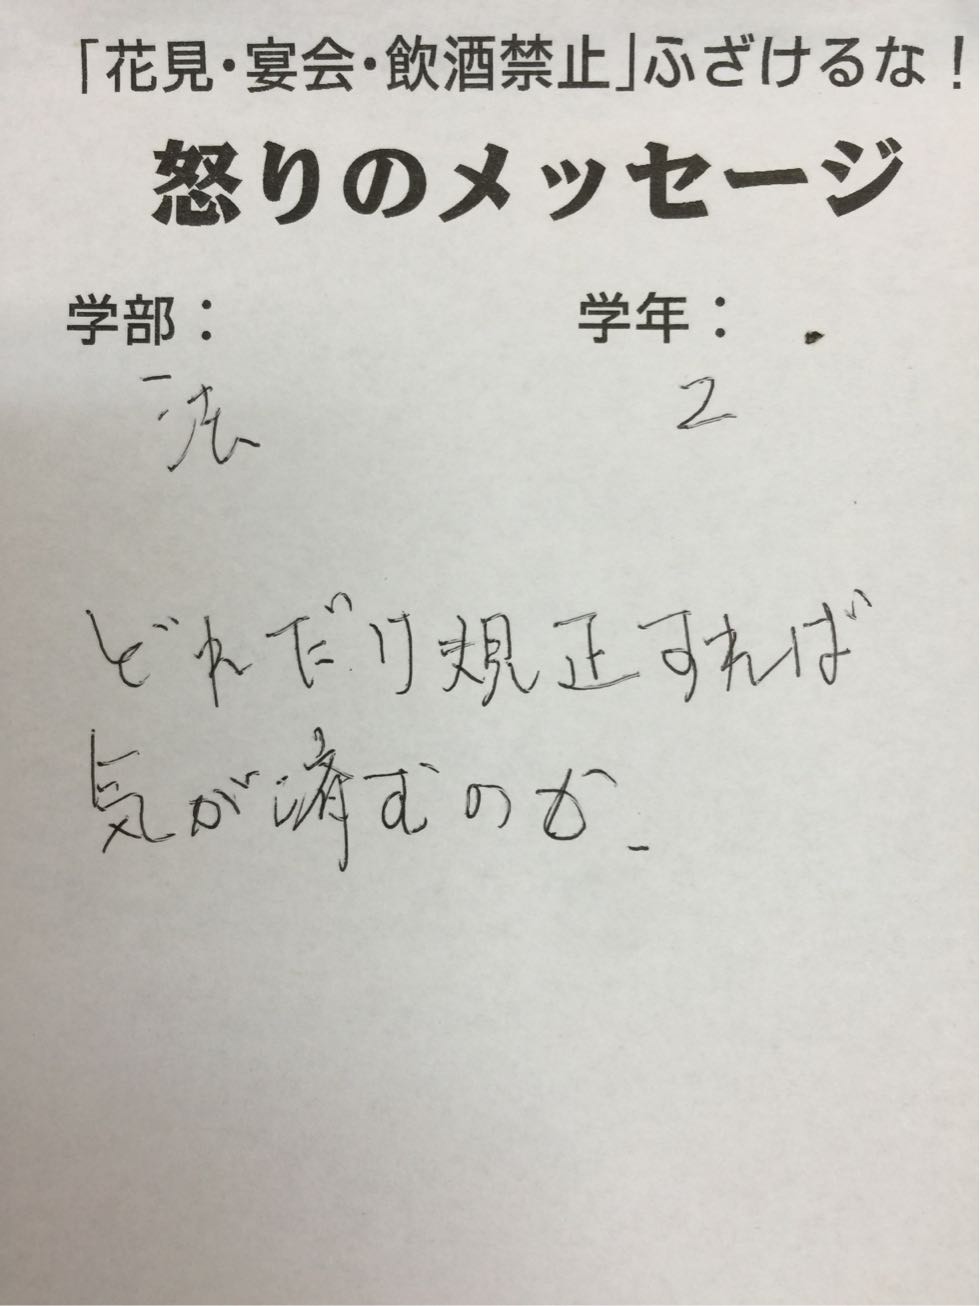 「花見・宴会・飲酒禁止」ふざけるな！
怒りのメッセージ
学部： 学年：
法 2
どれだけ規正すれば
気が済むのか